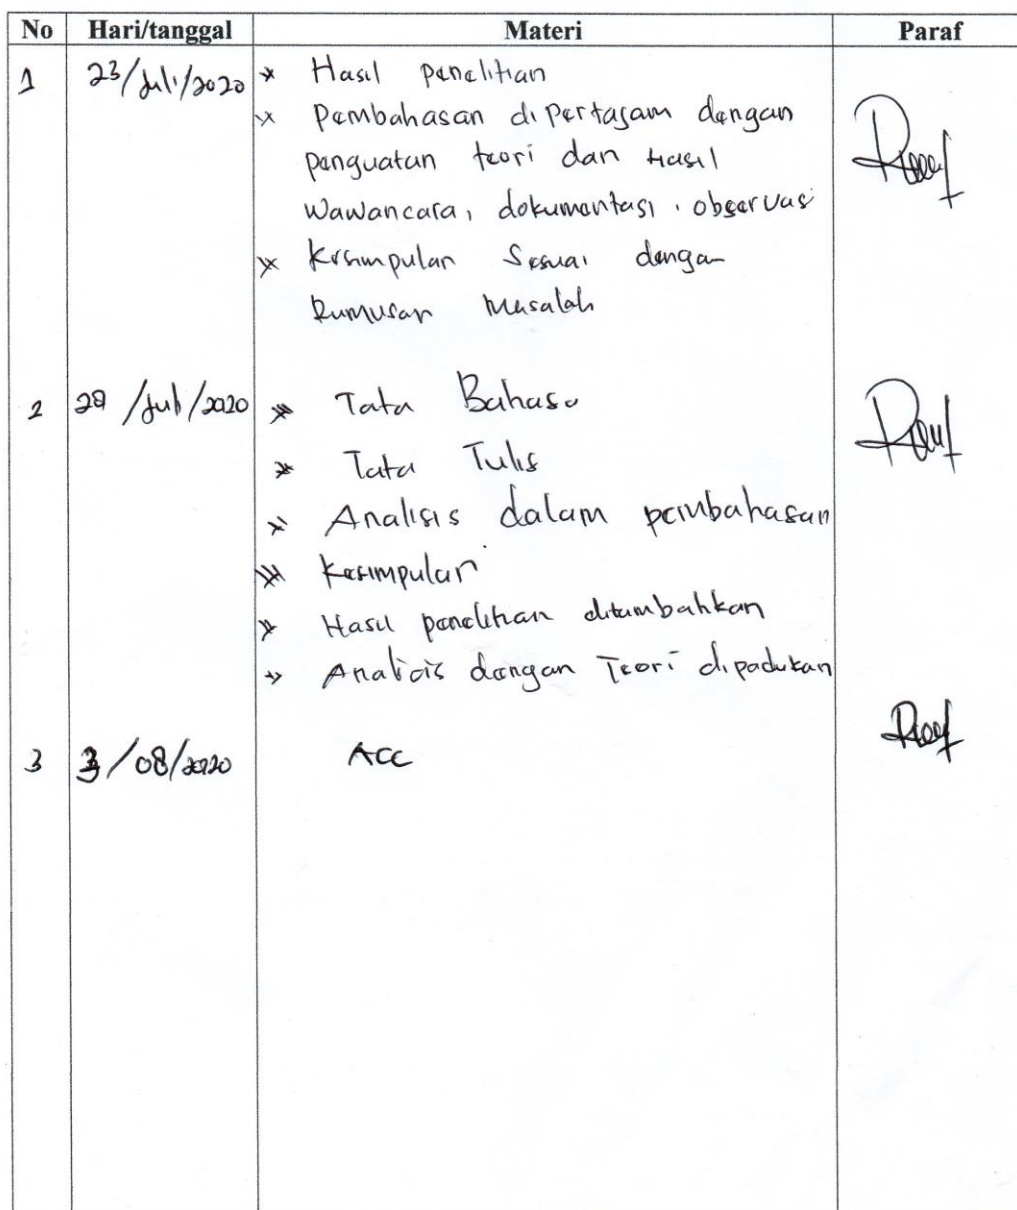 No Hari/tanggal Materi Paraf
1 23/Juli/2020 * Hasil penelitian
* Pembahasan dipertajam dengan
penguatan teori dan Hasil
wawancara, dokumentasi, observasi
* Kesimpulan Sesuai dengan
Rumusan Masalah
2 /Juli/2020 * Tata Bahasa
* Tata Tulis
* Analisis dalam pembahasan
* Kesimpulan
* Hasil penelitian ditambahkan
* Analisis dengan Teori dipadukan
3 3/08/2020 ACC